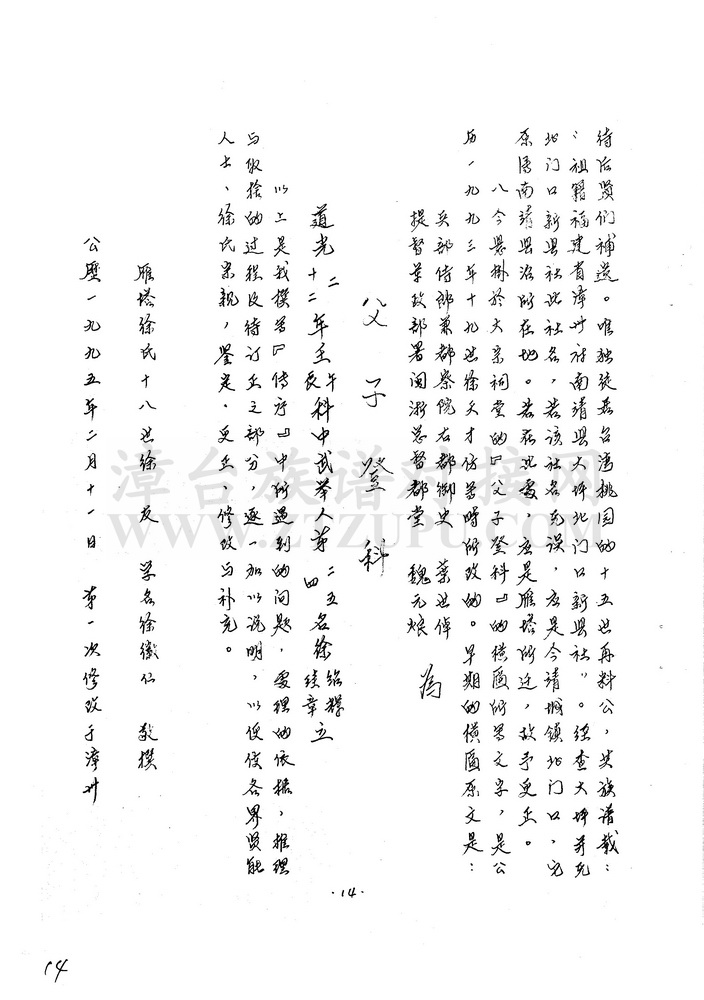 待后贤们补选。唯独徒居台湾桃园的十五世再料公，其族谱载：
“祖籍福建省漳州府南靖县大坪北门口新县社”。经查大坪并无
北门口新县社此社名，若该社名无误，应是今靖城镇北门口，它
原属南靖县治所在地。若在此处，应是雁塔所迁，故予更正。
八今悬挂於大宗祠堂的『父子登科』的横匾所写文字，是公
历一九九三年十九世徐天才仿写时所改的。早期的横匾原文是：
兵部侍郎兼都察院右都御史 叶世倬
提督军政部署闽浙总督都堂 魏元烺 为
父子登科
道光二年壬午科中武举人第二五名徐绍辉
十二 辰 四 廷章立
以上是我撰写『传序』中所遇到的问题，处理的依据，推理
与取捨的过程及待订正之部分，逐一加以说明，以便使各界贤能
人士、徐氏宗亲，鉴定、更正、修改与补充。
雁塔徐氏十八世徐友 学名徐徽仁 敬撰
公历一九九五年二月十一日 第一次修改于漳州
·14·
14
漳台族谱对接网
WWW.ZTZUPU.COM